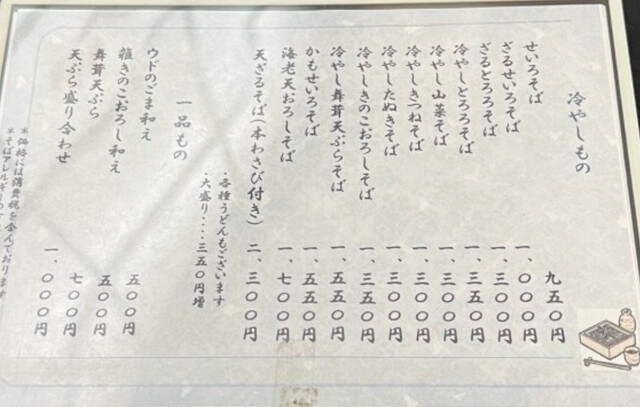 冷やしもの
せいろそば 九五〇円
ざるせいろそば 一、〇〇〇円
ざるとろろそば 一、三〇〇円
冷やしとろろそば 一、三五〇円
冷やし山菜そば 一、三〇〇円
冷やしきつねそば 一、三〇〇円
冷やしたぬきそば 一、三〇〇円
冷やしきのこおろしそば 一、三五〇円
冷やし舞茸天ぷらそば 一、五五〇円
かもせいろそば 一、五五〇円
海老天おろしそば 一、七〇〇円
天ざるそば(本わさび付き) 二、三〇〇円
・各種うどんもございます
・大盛り・・・・三五〇円増
一品もの
ウドのごま和え 五〇〇円
雑きのこおろし和え 五〇〇円
舞茸天ぷら 七〇〇円
天ぷら盛り合わせ 一、〇〇〇円
＊価格には消費税を含んでおります
＊そばアレルギー